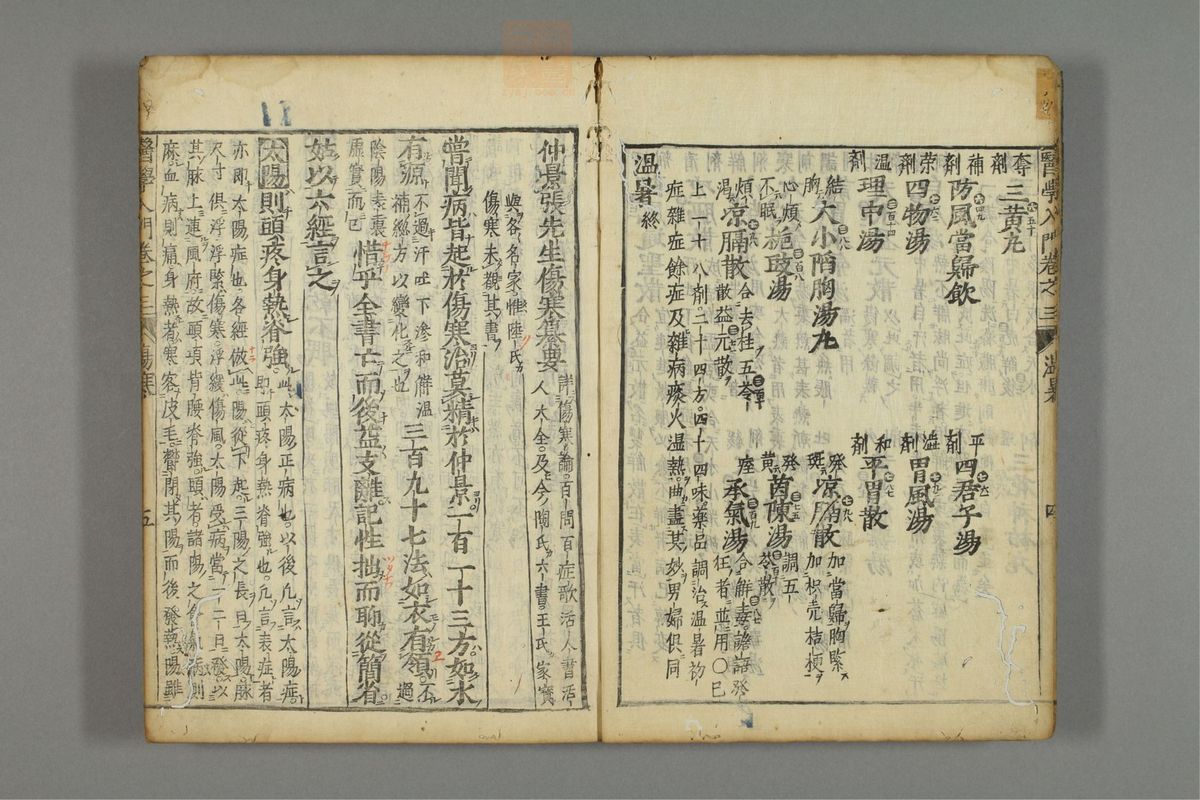 醫學入門卷之三 溫暑 四
奪劑 三黃丸
補劑 防風當歸飲 平劑 四君子湯
榮劑 四物湯 澁劑 胃風湯
溫劑 理中湯 和劑 平胃散
結胸 大小陷胸湯丸 發斑 凉膈散 加當歸胸緊加枳壳桔梗
心煩不眠 梔豉湯 發黃 茵陳湯 調五苓散
煩渴 凉膈散 合去桂五苓散益元散 痓 承氣湯 合解毒譫語發狂者並用○已
上一十八劑二十四方四十四味藥品調治溫暑初
症雜症餘症及雜病痰火濕熱曲盡其妙男婦俱同
溫暑終
仲景張先生傷寒纂要 詩傷寒論百問百症歌活人書活人大全及今陶氏六書王氏家寶
與各名家惟陸氏傷寒未觀其書
嘗聞病皆起於傷寒治莫精於仲景一百一十三方如水
有源 不過汗吐下滲和觧温補經方以變化之也 三百九十七法如衣有領 不過
陰陽表裏虛實而已 惜乎全書亡而後益支離記性拙而聊從簡省
姑以六經言之
太陽則頭疼身熱脊強 此太陽正病也以後凡言太陽症即頭疼身熱脊強也凡言表症者
亦即太陽症也各經倣此陽從下起三陽之長曰太陽脉
尺寸俱浮浮緊傷寒浮緩傷風太陽受病當一二日發以
其脉上連風府故頭項背腰脊強頭者諸陽之會傷病則
麻血病則痛身熱者寒客皮毛鬱閉其陽而後發熱陽雖
醫學入門卷之三 傷寒 五